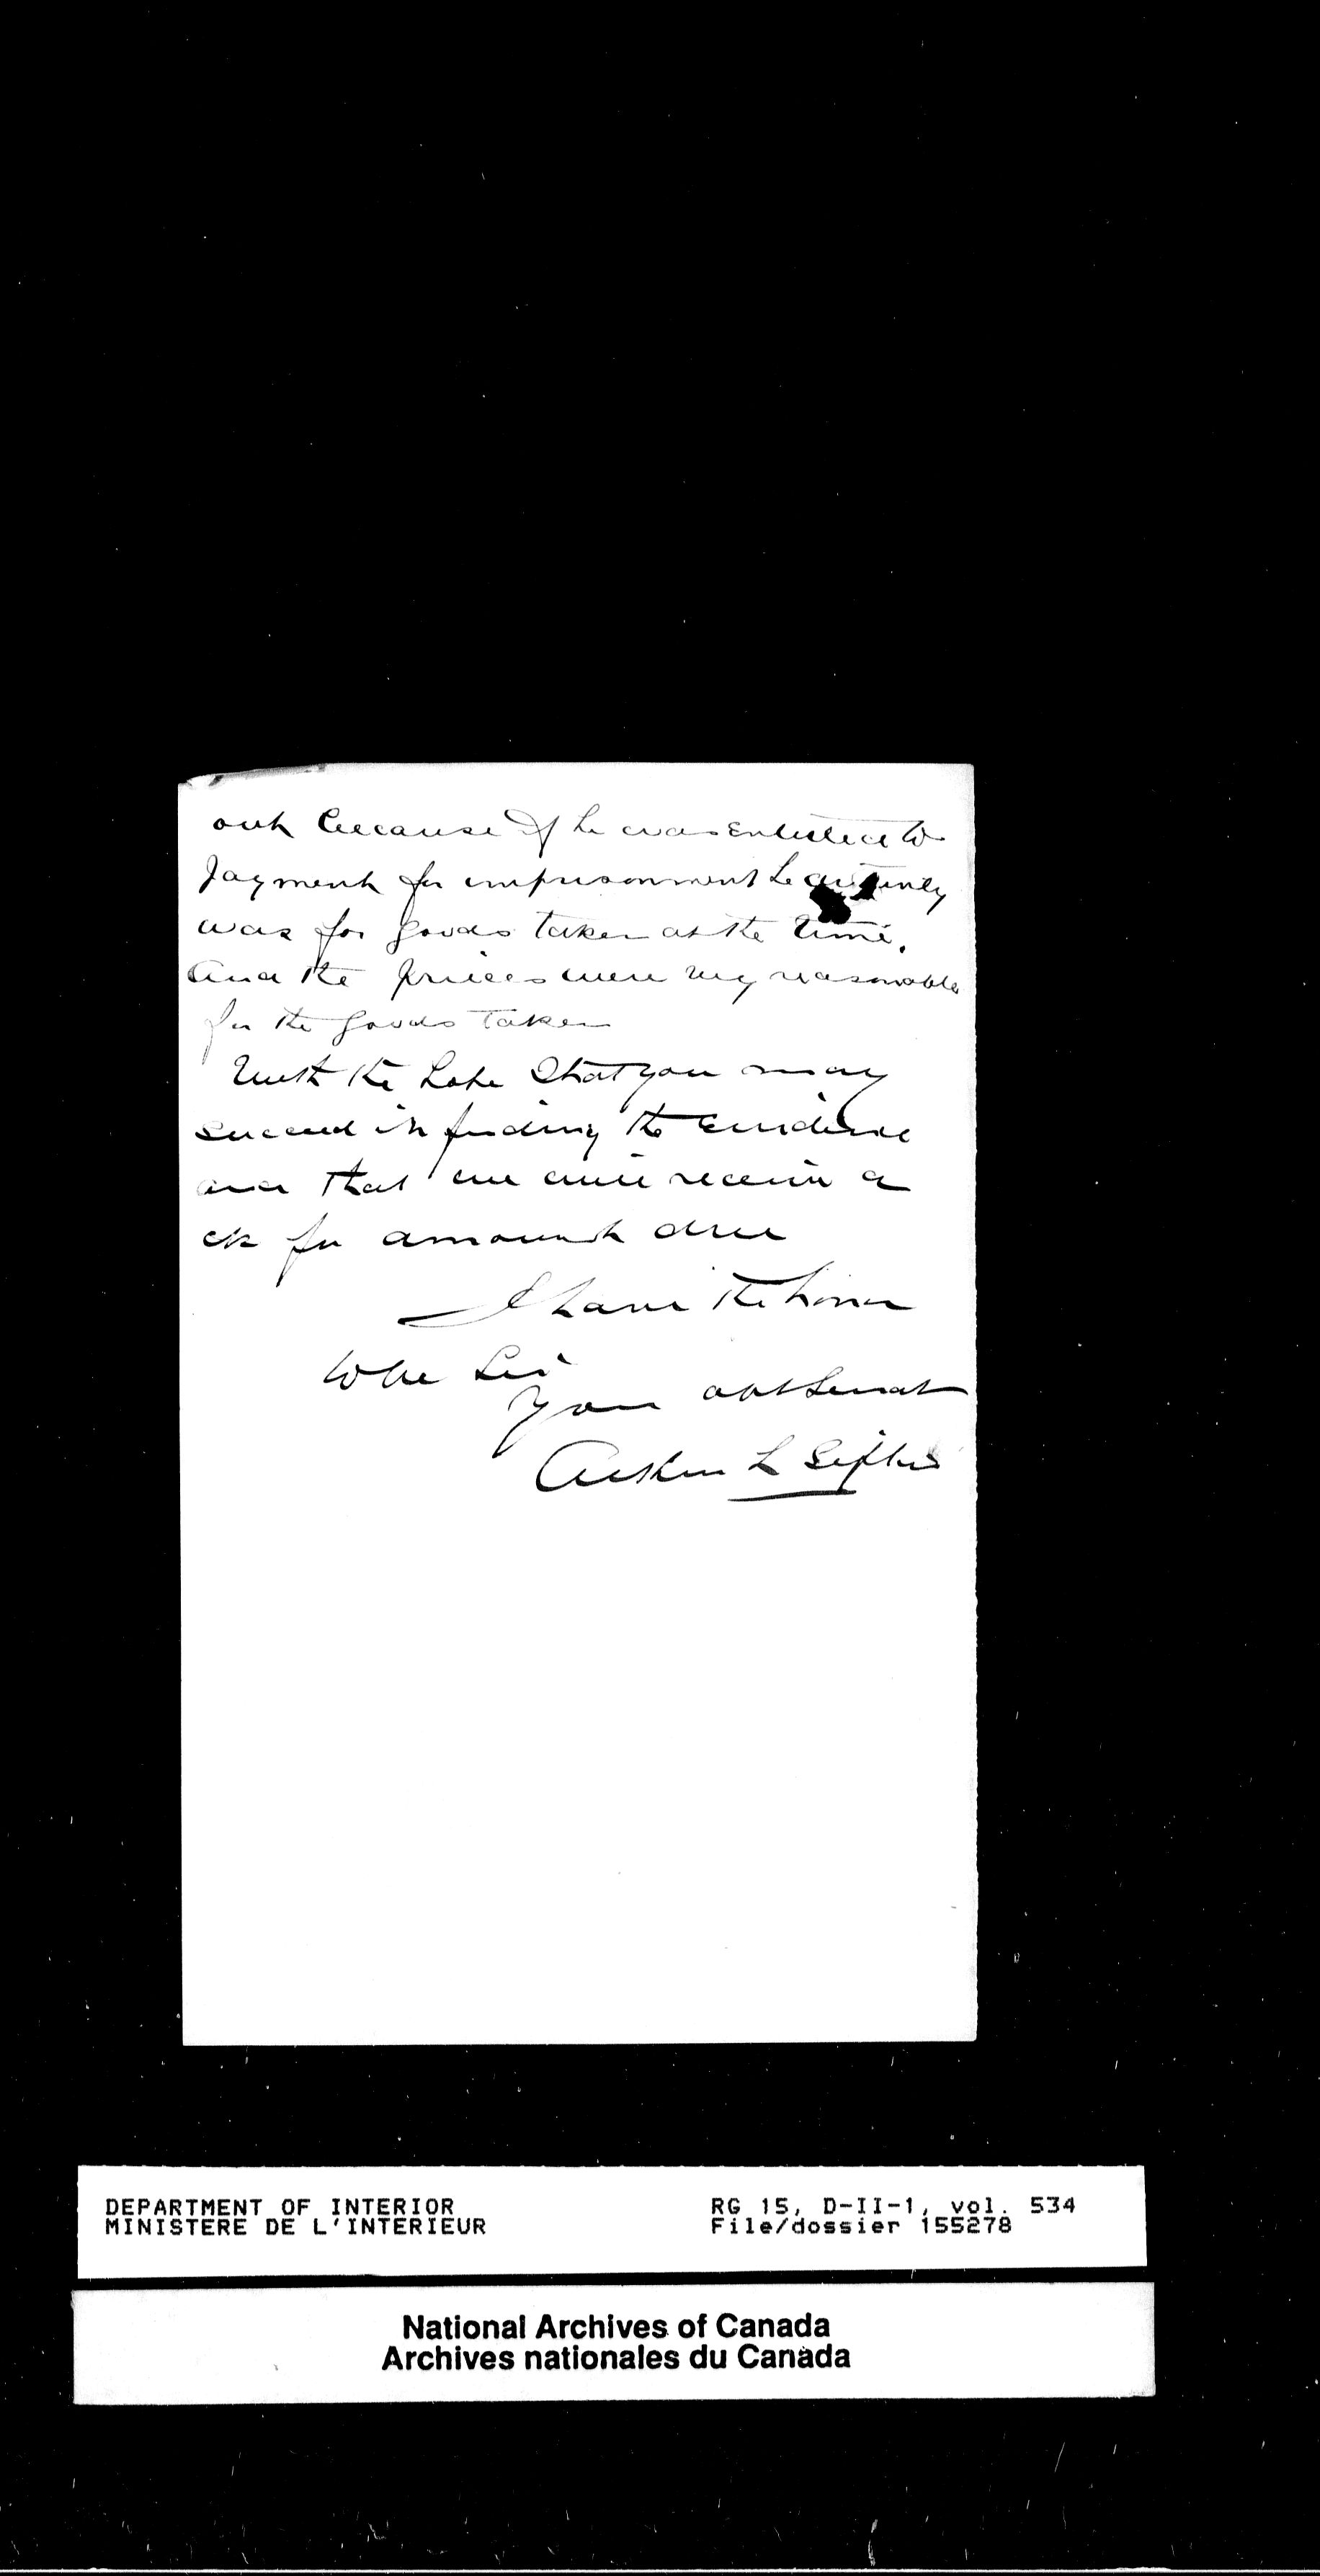 out because If he was Entitled to
payment for imprisonment he certainly
was for goods taken at the time.
And the prices were very reasonable
for the goods taken
With the hope that you may
succeed in finding the Evidence
and that we will receive a
ck for amount due
I have the honor
to be Sir
Your obt Servat
L Sifton
DEPARTMENT OF INTERIOR
MINISTERE DE L'INTERIEUR
RG 15, D-II-1, vol. 534
File/dossier 155278
National Archives of Canada
Archives nationales du Canada